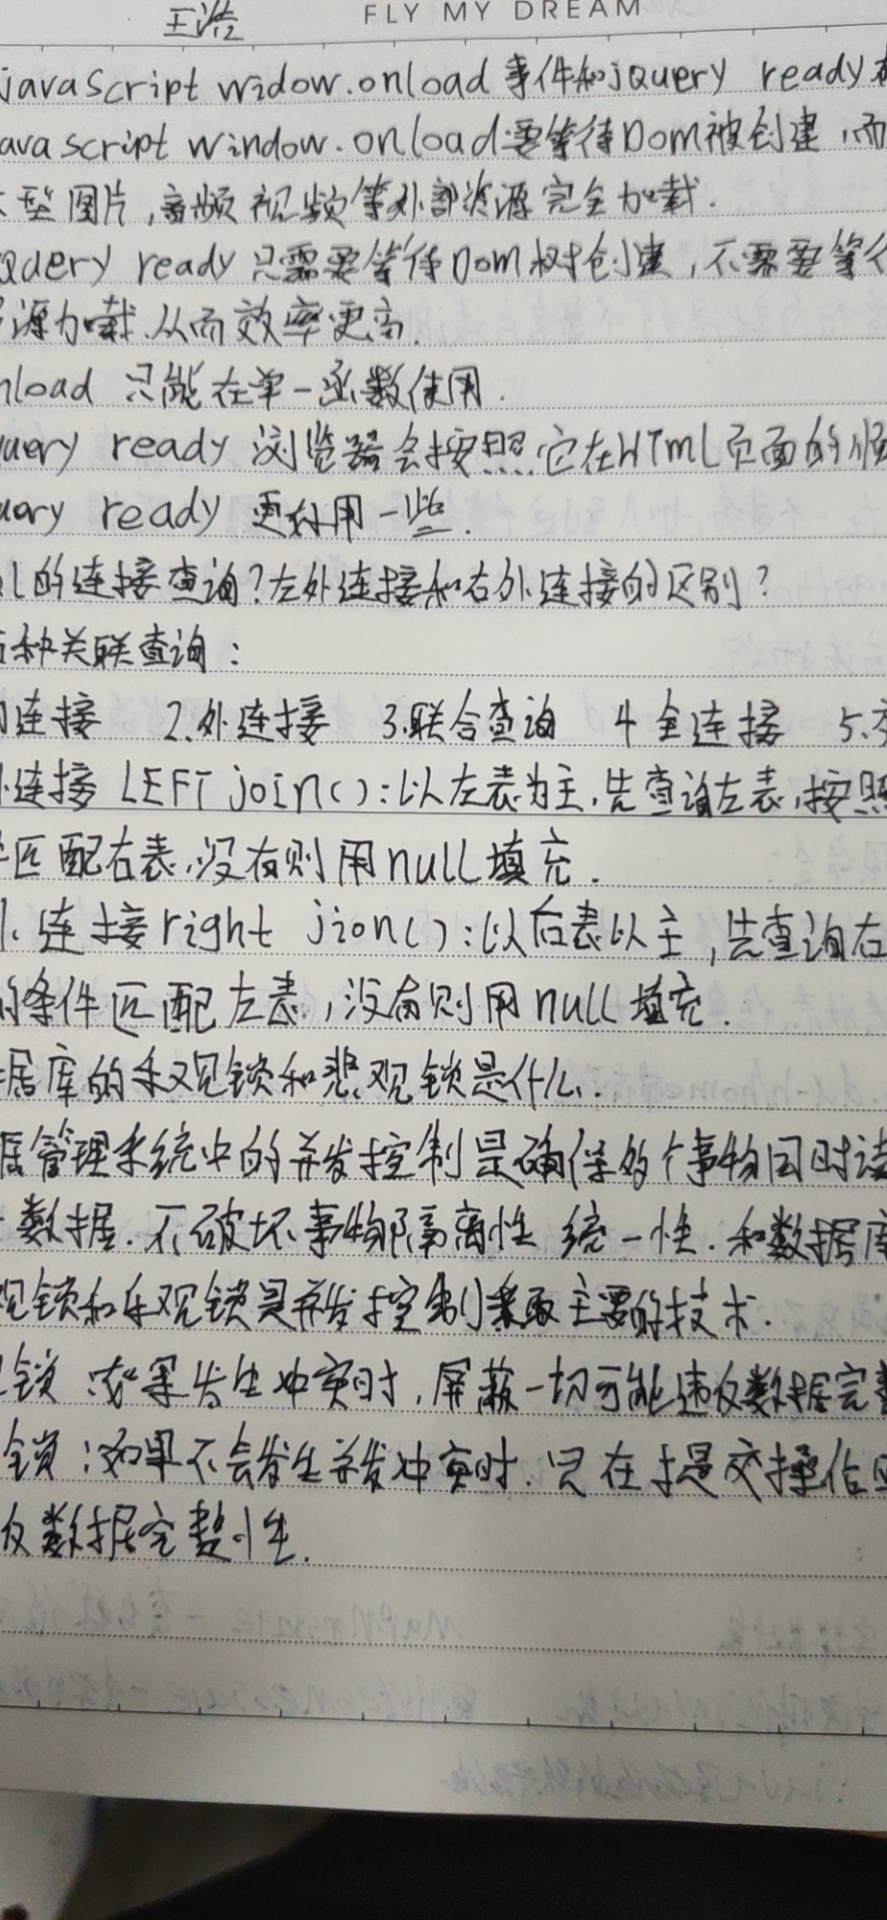 王浩 FLY MY DREAM
javascript widow.onload 事件和jQuery ready
avascript window.onload要等待Dom被创建,而
型图片,音频视频等外部资源完全加载.
Query ready 只需要等待Dom树创建,不需要等
源加载.从而效率更高.
nload 只能在单一函数使用.
uery ready 浏览器会按照它在HTmL页面的顺
uery ready 更好用一些.
L的连接查询?左外连接和右外连接的区别?
种关联查询:
连接 2.外连接 3.联合查询 4 全连接 5.交
连接 LEFT join():以左表为主,先查询左表,按照
匹配右表,没有则用null填充.
连接right jion():以右表以主,先查询右
的条件匹配左表,没有则用null填充.
据库的乐观锁和悲观锁是什么.
管理系统中的并发控制是确保多个事物同时读
数据.不破坏事物隔离性 统一性.和数据库
观锁和乐观锁是并发控制采取主要的技术.
锁:如果发生冲突时,屏蔽一切可能违反数据完整
锁:如果不会发生并发冲突时.只在提交操作
反数据完整性.